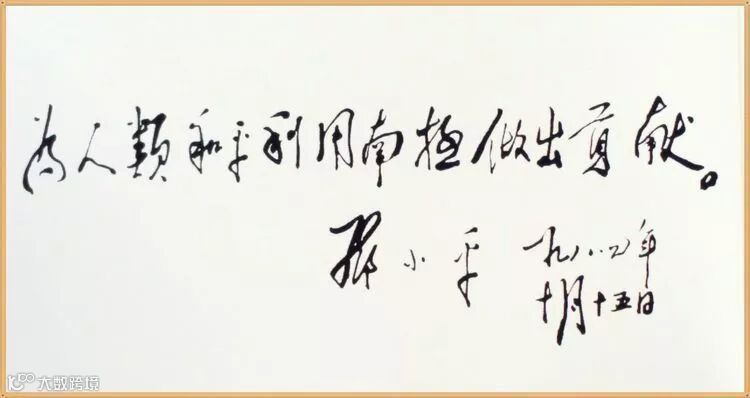 为人類和平利用南極做出貢献。
鄧小平 一九八四年
十月十五日
大数跨境